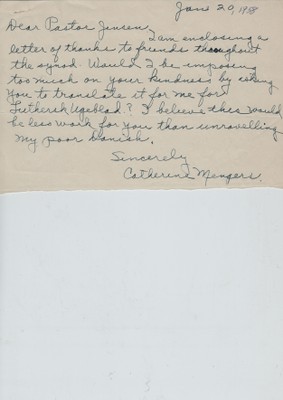 June 20, 1958
Dear Pastor Jensen,
I am enclosing a
letter of thanks to friends throughout
the synod. Would I be imposing
too much on your kindness by asking
you to translate it for me for
Luthersk Ugeblad? I believe this would
be less work for you than unravelling
my poor Danish.
Sincerely
Catherine Mengers